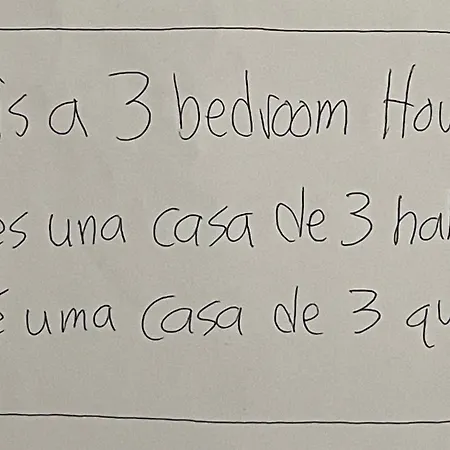 is a 3 bedroom Hou
es una casa de 3 ha
é uma casa de 3 qu